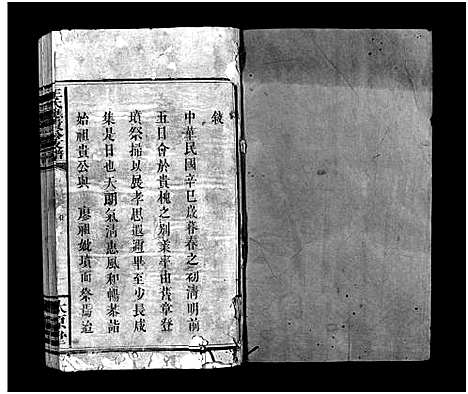 敍
中華民國辛巳歲暮春之初清明前
五日會於貴槐之別業率由舊章登
墳祭掃以展孝思遐邇畢至少長咸
集是日也天朗氣清惠風和暢恭詣
始祖貴公與 廖祖妣墳而祭焉追
太原堂